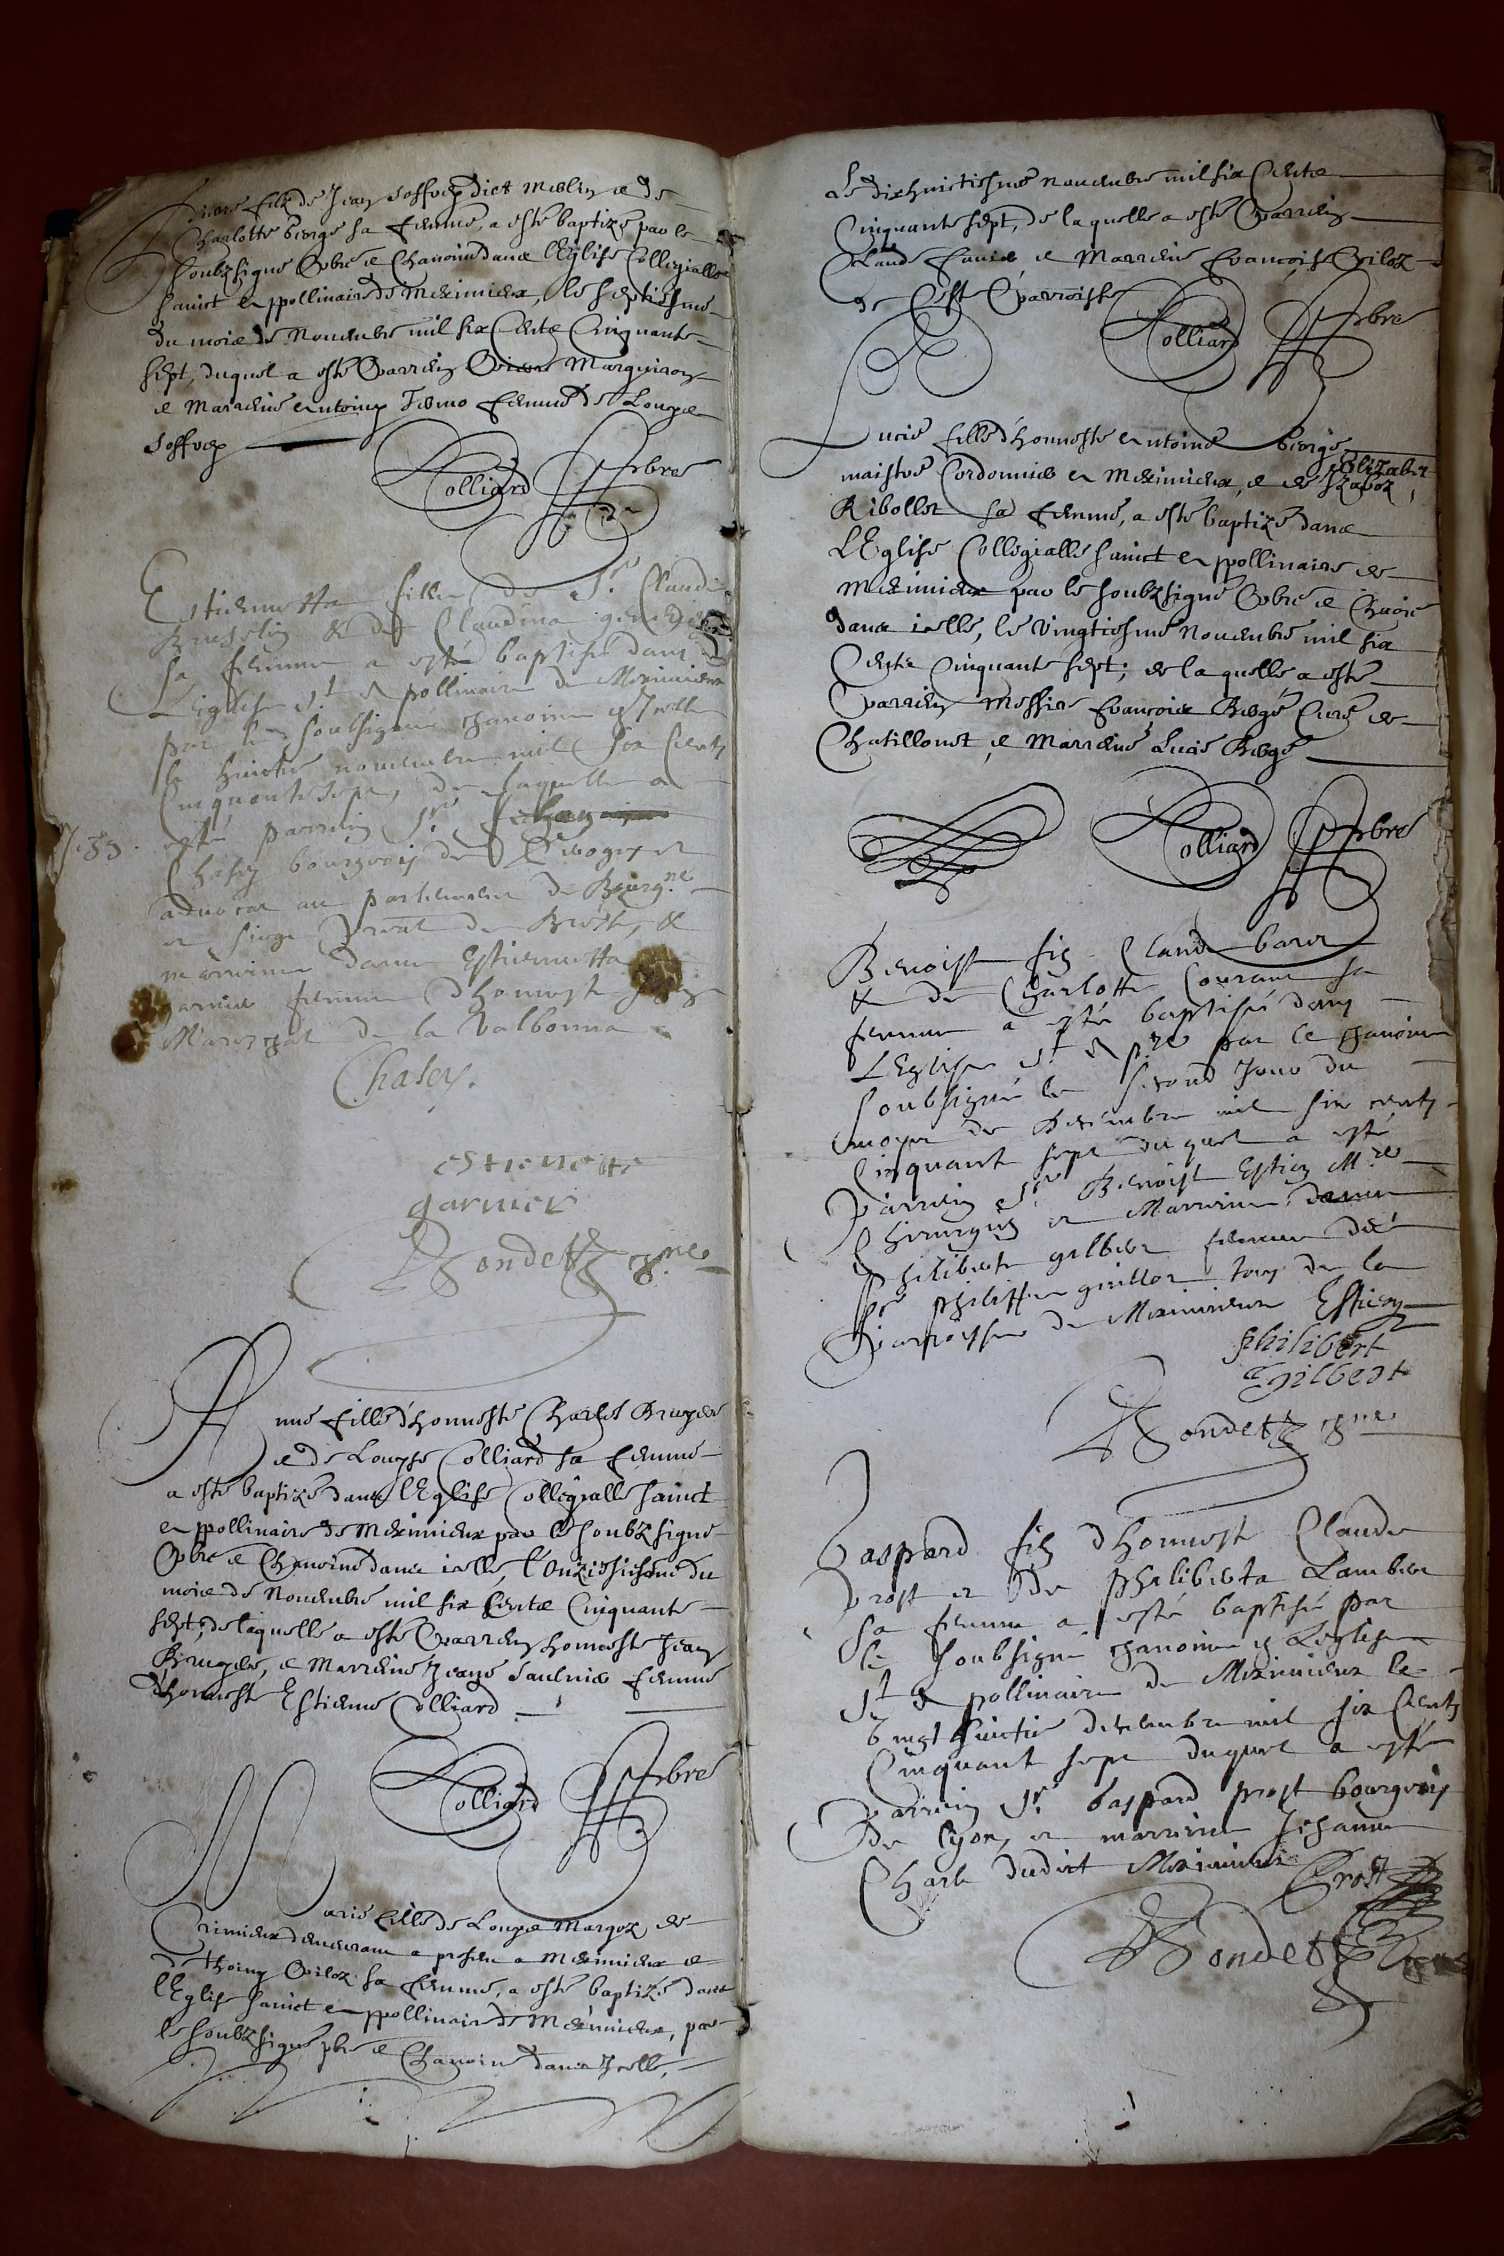 filz de Jean Joffrey dict Meslin et de
Charlotte Bergé sa femme, a esté baptizé par le
soubzsigné Pbre et Chanoine dans l'Eglise Collegialle
Sainct Appollinaire de Meximieux, le septiesme
du mois de Novembre mil six Cents Cinquante
sept, duquel a esté Parrein Pierre Marguiron
et Marreine Antoin femme de Louys
Joffrey
Colliard Pbre
Estiennette fille de Sr. Claude
& de Claudine
sa femme a esté baptisée dans
L'eglise St Appollinaire de Meximieux
par le soubsigné chanoine en Icelle
le huictie novembre mil six Cents
Cinquante sept, de laquelle a
esté parrein Sr.
Chasey bourgeois de et
advocat au parlement de Bourgne
et siege de Bresse, &
marrine dame Estiennette
Garnier femme d'honneste
Mareschal de la Valbonne
Chasey.
estienette
garnier
Bondet chne
Anne fille d'honneste Charles Bruyere
et de Louyse Colliard sa femme
a esté baptizé dans l'Eglise Collegialle Sainct
Appollinaire de Meximieux par le soubzsigné
Pbre et Chanoine dans icelle, l'Onziesiesme du
mois de Novembre mil six Cents Cinquante
sept, de laquelle a esté Parrein honneste Jean
Bruyere, et Marreine Jeane Saulnie femme
d'honneste Estienne Colliard
Colliard Pbre
Marie fille de Louys Margoz, de
Crimieux demeurant a present a Meximieux et
d'Thoiny Piloz sa femme, a esté baptizé dans
l'Eglise Sainct Appollinaire de Meximieux, par
le soubzsigné pbre et Chanoine dans Icelle,
Le dixhuictiesme Novembre mil six Cents
Cinquante sept, de laquelle a esté Parrein
Claude Favie, et Marreine Francoise Piloz
de Ceste Parroisse
Colliard Pbre
Lucie fille d'honneste Antoine Bergé
maistre Cordonnie a Meximieux, et de Elizabet
Ribollet sa femme, a esté baptizé dans
L'Eglise Collegialle Sainct Appollinaire de
Meximieux par le soubzsigné Pbre et Chaoine
dans icelle, le Vingtiesme Novembre mil six
Cents Cinquante sept; de laquelle a esté
Parrein Messire Francois Bergé Curé de
Chatillonet, et Marreine Lucie Bergé
Colliard Pbre
Benoist fils Claude
& de Charlotte Couran sa
femme a esté baptisé dans
L'Eglise St Apre par le chanoine
soubsigné le second Jour du
moys de Decembre mil six cents
Cinquant sept duquel a esté
Parrein Sr. Benoist Estien Mre
Chirurgien et Marrine dame
philiberte gilbert femme de
Sr philippe guillot tous de la
Parroisse de Meximieux Estien
philibert
gilbert
Bondet chne
Gaspard fils d'honneste Claude
Prost et de philiberte Lambert
sa femme a esté baptisé par
le soubsigné chanoine en L'eglise
St Appollinaire de Meximieux le
vingt huictie decembre mil six Cents
Cinquant sept duquel a esté
Parrein Sr. Gaspard prost bourgeois
de lyon, et marrine Jehanne
Charle dudict Meximieux Prost
Bondet